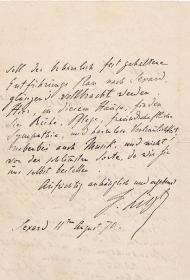 soll der beharrlich fest gehaltene
Entführungs Plan nach Sexard
glänzend vollbracht werden.
Hier, in diesem Hause, finden
Sie Ruhe, Pflege, freundschaftliche
Sympathie, und herrliche
nebenbei auch Musik, und nicht
von der schlimmsten Sorte, da wir sie
uns selbst bestellen.
Aufrichtig anhänglich und ergebenst
F. Liszt
Sexard 11ten August 70.